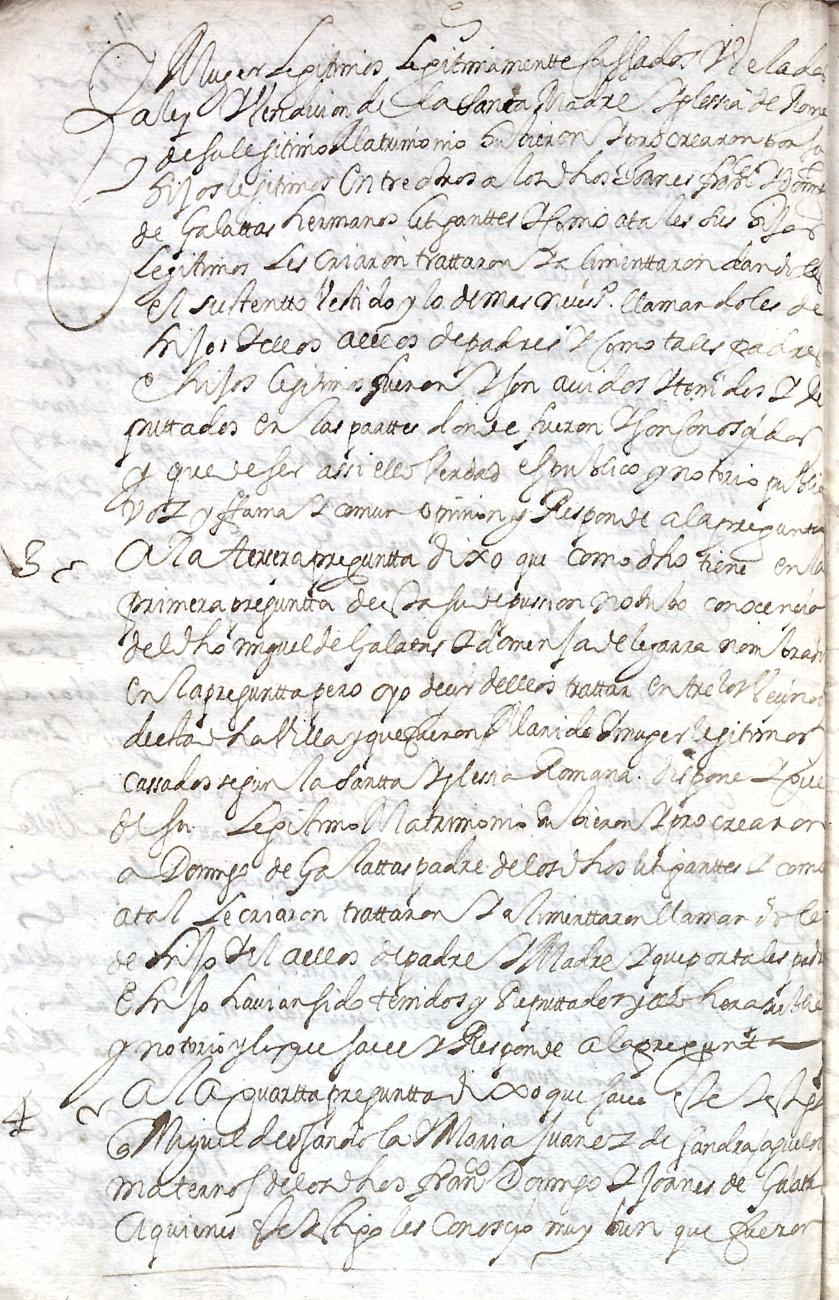 Muger Legitimos Legitimamentte Cassados Y Velados
a ley Y Vendicion de la Santa Madre Yglessia de Roma
y de su legitimo Matrimonio hubieron Y procrearon por sus
hijos legitimos Entre otros a los dhos Joanes franco Y Domingo
de Galattas hermanos litiganttes Y Como a tales sus hijos
Legitimos Les Criaron trattaron Y alimenttaron dandoles
el sustentto Vestido y lo demas neceso. llamandoles de
hijos Y ellos a ellos de padres Y Como tales padres
e hijos legitimos fueron Y son avidos Y tenidos Y re
puttados en las parttes donde fueron Y son Conosidos
y que de ser assi es Verdad es publico y notorio publica
voz y ffama Y comun opinion y Responde a la pregunta
3 A la tercera pregunta dixo que como dho tiene en la
primera pregunta de esta su depussion no tubo conocencia
del dho miguel de Galatas Y domenja de legarra nombrados
en la pregunta pero oyo decir de ellos trattar entre los Vecinos
de esta dha Villa y que fueron Marido Y muger legitimos
cassados segun la Santta Yglesia Romana dispone Y que
de su Legitimo Matrimonio hubieron Y procrearon
a Domingo de Galattas padre de los dhos litiganttes Y como
a tal Le criaron trattaron Y alimenttaron llamandole
de hijo Y el a ellos de padre Y Madre Y que por tales padres
e hijo havian sido tenidos y Reputtados y ello hera publico
y notorio y lo que save Y Responde a la pregunta
4 A la quartta preguntta dixo que save este testigo
a Miguel de Y Maria Juanez de aguelos
maternos de los dhos franco Domingo Y Joanes de Galatas
A quienes este testigo les Conoscio muy bien que fueron